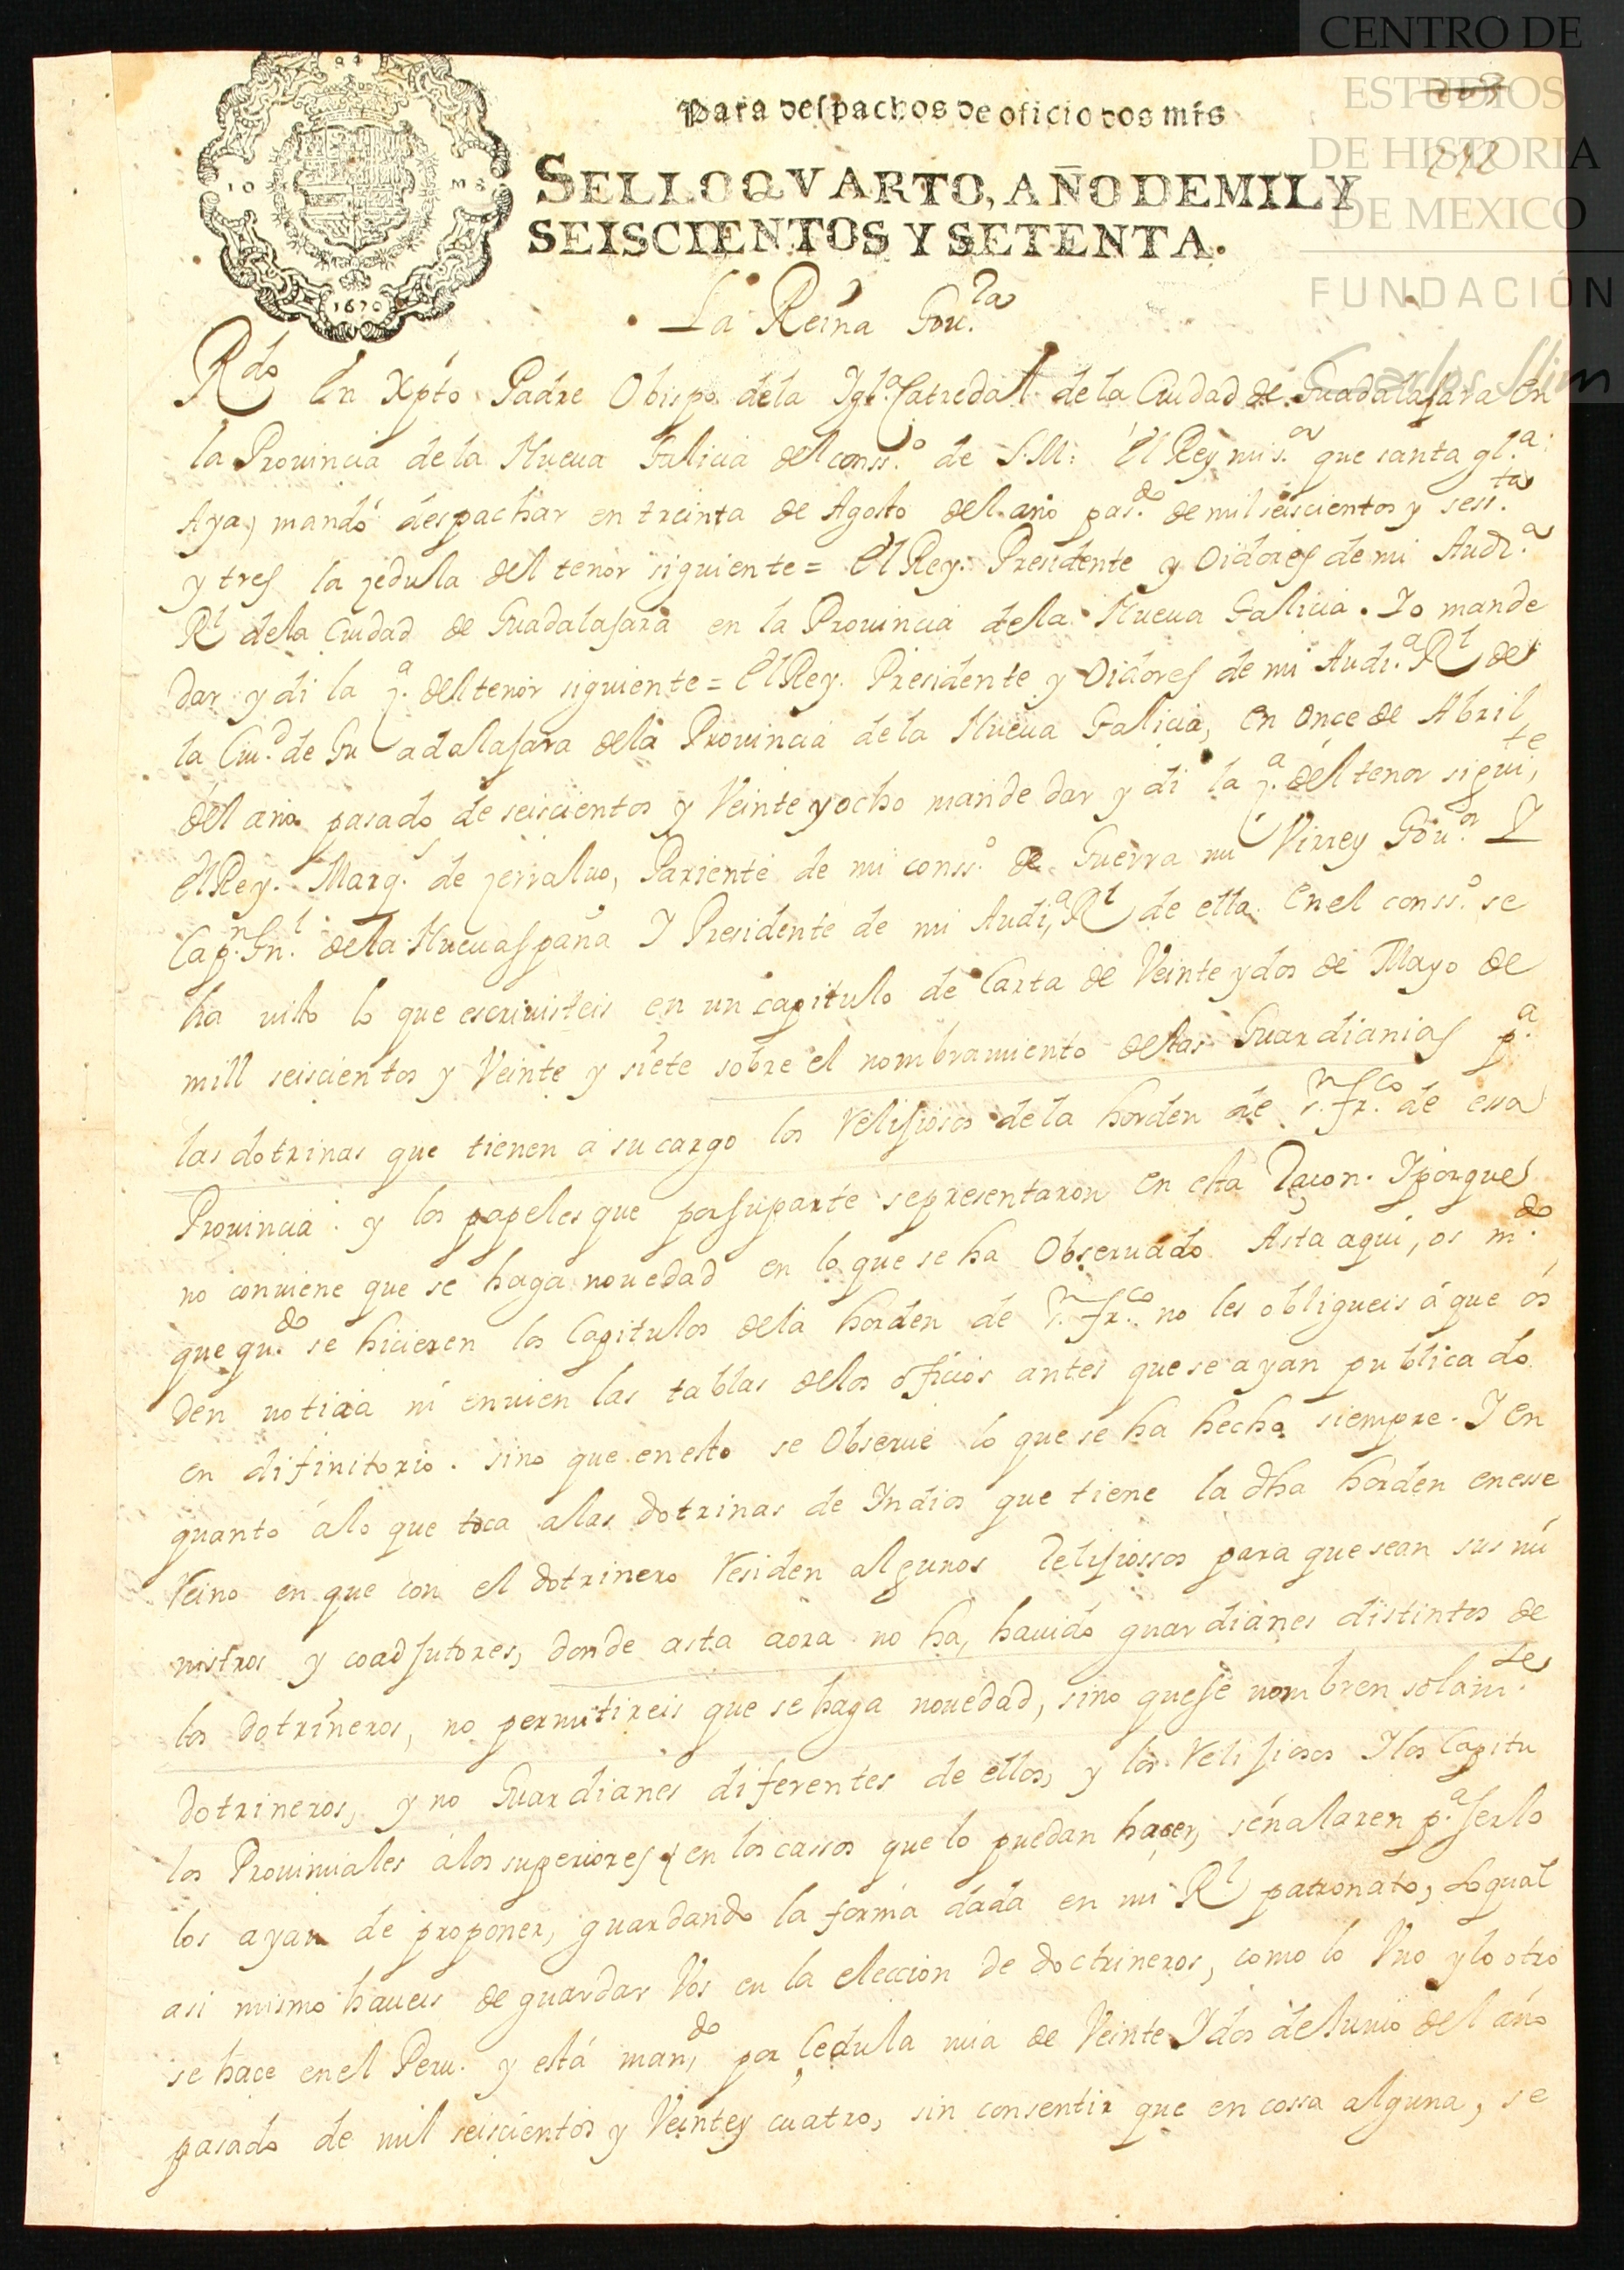 CENTRO DE
ESTUDIOS
DE HISTORIA
DE MEXICO
FUNDACIÓN
Carlos Slim
Para despachos de oficio dos mrs
SELLO QVARTO, AÑO DE MIL Y
SEISCIENTOS Y SETENTA.
1670
La Reina Gou.ra
Rdo En Xpto Padre Obispo dela Igl.a Catredal de la Ciudad de Guadalajara En
la Prouincia de la Nueua Galicia del conss.o de S.M: El Rey mi s.or que santa gl.a
Aya, mandó despachar en treinta de Agosto del año pas.do de mil seiscientos y sess.ta
y tres la zedula del tenor siguiente = El Rey. Presidente y Oidores de mi Audi.a
Rl dela Ciudad de Guadalajara en la Prouincia dela Nueua Galicia. Io mande
dar y di la z.a del tenor siguiente = El Rey. Presidente y Oidores de mi Audi.a Rl de
la Ciu.d de Guadalajara dela Prouincia de la Nueua Galicia, en Once de Abril
del año pasado de seiscientos y Veinte y ocho mande dar y di la z.a del tenor sigui,te
El Rey. Marq.s de zerraluo, Pariente de mi conss.o de Guerra mi Virrey Gou.or Y
Cap.n Gn.l dela Nueuaspaña I Presidente de mi Audi,a Rl de ella. En el conss.o se
ha visto lo que escriuisteis en un capitulo de Carta de Veinte y dos de Mayo de
mill seiscientos y Veinte y siete sobre el nombramiento delas Guardianias p.a
las dotrinas que tienen a su cargo los Relijiosos de la horden de s.n fr.co de essa
Prouincia: y los papeles que por su parte se presentaron en esta Raçon. I porque
no conuiene que se haga nouedad en lo que se ha Obseruado Asta aqui, os m.do
que qu.do se hicieren los Capitulos dela horden de s.n fr.co no les obligueis á que ós
den noticia ni enuien las tablas delos oficios antes que se ayan publicado
en difinitorio. sino que en esto se Obserue lo que se ha hecho siempre. I en
quanto álo que toca alas dotrinas de Indios que tiene la dha horden en esse
Reino en que con el dotrinero Residen algunos Relijiossos para que sean sus mi
nistros y coadjutores, donde asta aora no ha, hauido guardianes distintos de
los dotrineros, no permitireis que se haga nouedad, sino que se nombren solam.te
dotrineros, y no Guardianes diferentes de ellos, y los Relijiosos I los Capitu
los Prouinciales álos superiores q en los cassos que lo puedan hacer, señalaren p.a serlo
los ayan de proponer, guardando la forma dada en mi Rl patronato, Loqual
asi mismo haueis de guardar Vos en la eleccion de doctrineros, como lo Vno y lo otro
se hace en el Peru. y está man,do por Cedula mia de Veinte I dos de Junio del año
pasado de mil seiscientos y Veinte y cuatro, sin consentir que en cossa alguna, se